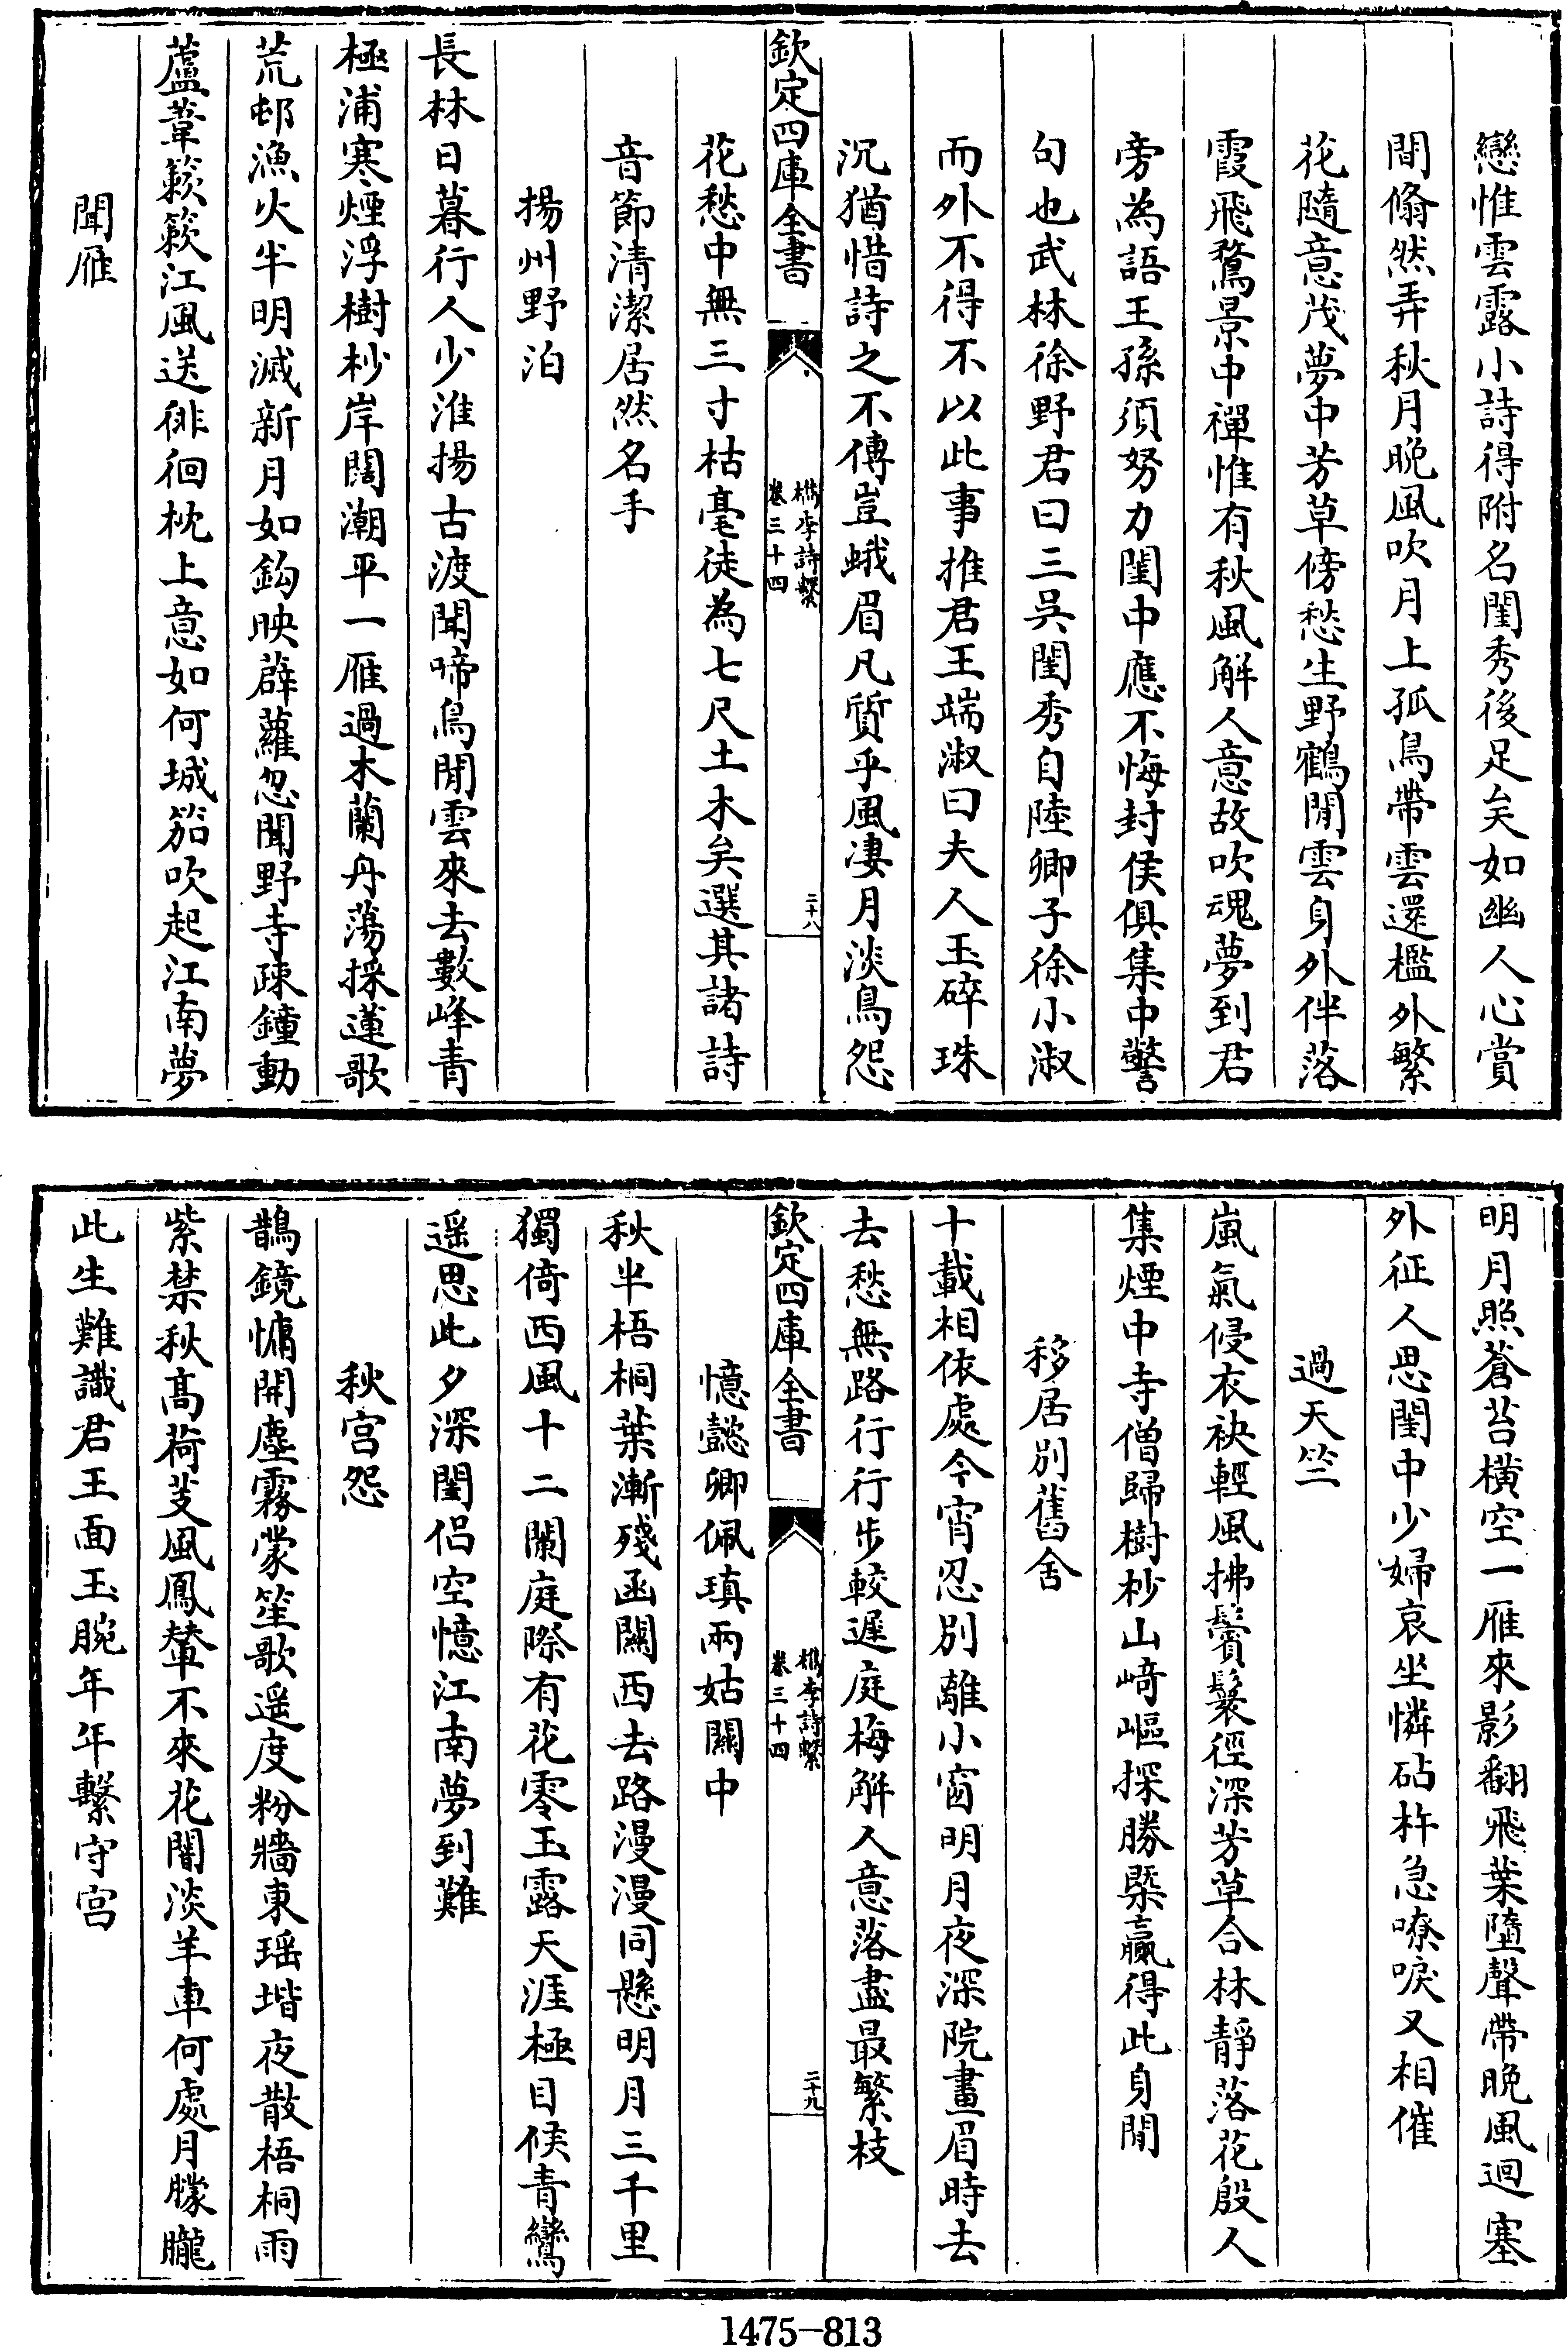 戀惟雲露小詩得附名閨秀後足矣如幽人心賞
間翛然弄秋月晚風吹月上孤鳥帶雲還檻外繁
花隨意茂夢中芳草傍愁生野鶴閒雲身外伴落
霞飛鶩景中禪惟有秋風解人意故吹魂夢到君
旁為語王孫須努力閨中應不悔封侯俱集中警
句也武林徐野君曰三吳閨秀自陸卿子徐小淑
而外不得不以此事推君王端淑曰夫人玉碎珠
沉猶惜詩之不傳豈蛾眉凡質乎風凄月淡鳥怨
欽定四庫全書
檇李詩繫
卷三十四
二十八
花愁中無三寸枯毫徒為七尺土木矣選其諸詩
音節清潔居然名手
揚州野泊
長林日暮行人少淮揚古渡聞啼鳥閒雲來去數峰青
極浦寒煙浮樹杪岸闊潮平一雁過木蘭舟蕩採蓮歌
荒邨漁火半明滅新月如鈎映薜蘿忽聞野寺疎鐘動
蘆葦簌簌江風送徘徊枕上意如何城笳吹起江南夢
聞雁
明月照蒼苔橫空一雁來影翻飛葉墮聲帶晚風迴塞
外征人思閨中少婦哀坐憐砧杵急嘹唳又相催
過天竺
嵐氣侵衣袂輕風拂鬢鬟徑深芳草合林靜落花殷人
集煙中寺僧歸樹杪山崎嶇探勝槩贏得此身閒
移居別舊舍
十載相依處今宵忍別離小窗明月夜深院畫眉時去
去愁無路行行步較遲庭梅解人意落盡最繁枝
欽定四庫全書
檇李詩繫
卷三十四
二十九
憶懿卿佩瑱兩姑關中
秋半梧桐葉漸殘函關西去路漫漫同懸明月三千里
獨倚西風十二闌庭際有花零玉露天涯極目候青鸞
遥思此夕深閨侣空憶江南夢到難
秋宫怨
鵲鏡慵開塵霧蒙笙歌遥度粉牆東瑶堦夜散梧桐雨
紫禁秋高荷芰風鳳輦不來花闇淡羊車何處月朦朧
此生難識君王面玉腕年年繫守宫
1475-813